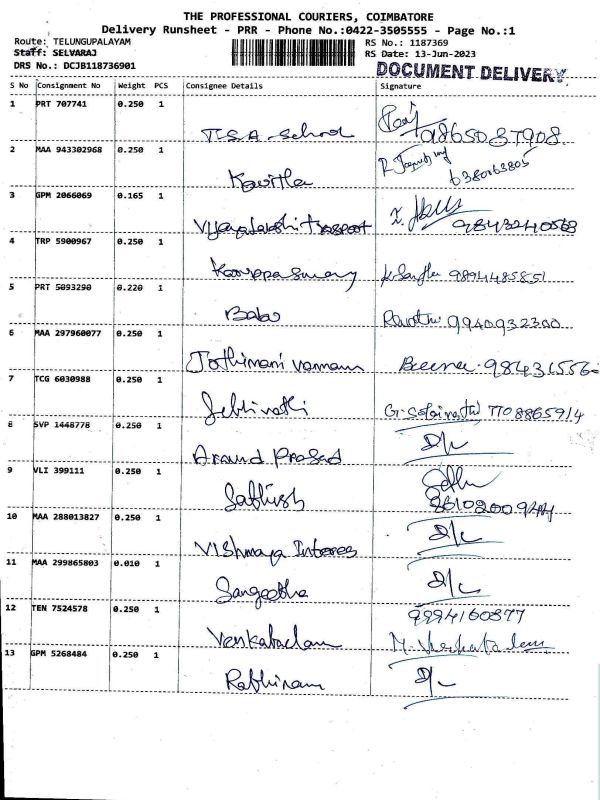 THE PROFESSIONAL COURIERS, COIMBATORE
Delivery Runsheet - PRR - Phone No.:0422-3505555 - Page No.:1
Route: TELUNGUPALAYAM RS No.: 1187369
Staff: SELVARAJ RS Date: 13-Jun-2023
DRS No.: DCJB118736901 DOCUMENT DELIVERY
S No Consignment No Weight PCS Consignee Details Signature
1 PRT 707741 0.250 1
T.S.A School
2 MAA 943302968 0.250 1
Kavitha 6380163805
3 GPM 2066069 0.165 1
Vijayalakshi Transport 9843240568
4 TRP 5900967 0.250 1
Karuppasamy 9894485851
5 PRT 5093290 0.220 1
Babu 9940932300
6 MAA 297960077 0.250 1
Jothimani Beena. 984431556
7 TCG 6030988 0.250 1
7708865914
8 SVP 1448778 0.250 1 D/L
Anand Prasad
9 VLI 399111 0.250 1
Sathish
10 MAA 288013827 0.250 1 D/L
Vishmaya
11 MAA 299865803 0.010 1 D/L
Sangeetha
12 TEN 7524578 0.250 1 9994160877
Venkatachalam
13 GPM 5268484 0.250 1 D/L
Rathinam